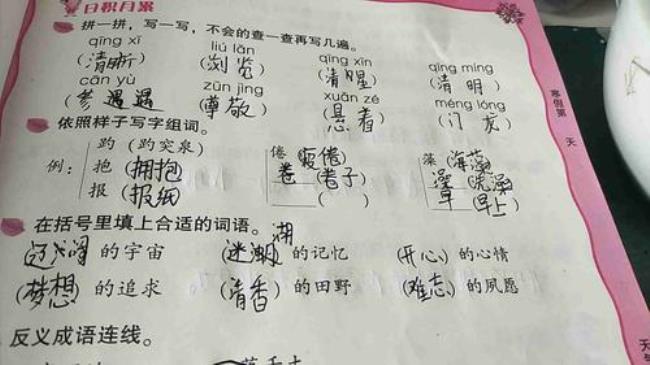 日积月累
拼一拼，写一写，不会的查一查再写几遍。
qīng xī liú lǎn qīng xǐn qīng míng
(清晰) (浏览) (清醒) (清明)
cān yù zūn jìng xuān zé méng lóng
(参遇遇) (尊敬) (悬着) (门龙)
依照样子写字组词。
趵 (趵突泉) 倦 疲倦 藻 (海藻)
例： 抱 (拥抱) 卷 (卷子) 澡 (洗澡)
报 (报纸) ( ) 草 (早上)
在括号里填上合适的词语。
湖
(辽阔) 的宇宙 (迷湖) 的记忆 (开心) 的心情
(梦想) 的追求 (清香) 的田野 (难忘) 的夙愿
反义成语连线。
寒假第 天
天气